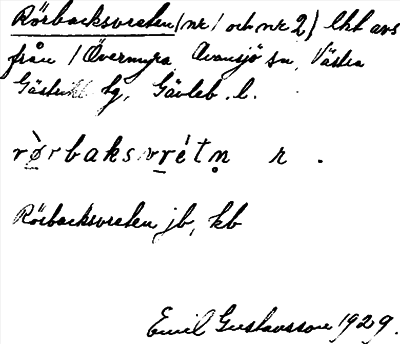 Rörbacksvreten (nr 1 och nr 2) lht avs
från 1 Övermyra, Ovansjö sn, Västra
Gästrikl. tg, Gävleb. l.
rø̀rbaksvrétn̥ r .
Rörbacksvreten jb, kb
Emil Gustavsson 1929.